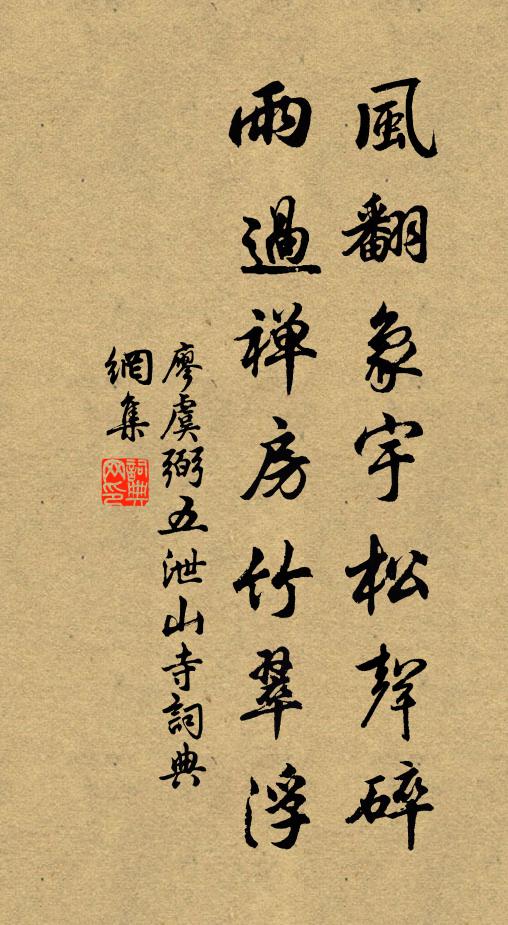 風翻象宇松聲碎
雨過禅房竹翠浮
廖虞弼五泄山寺詞典
網集
詞典網印